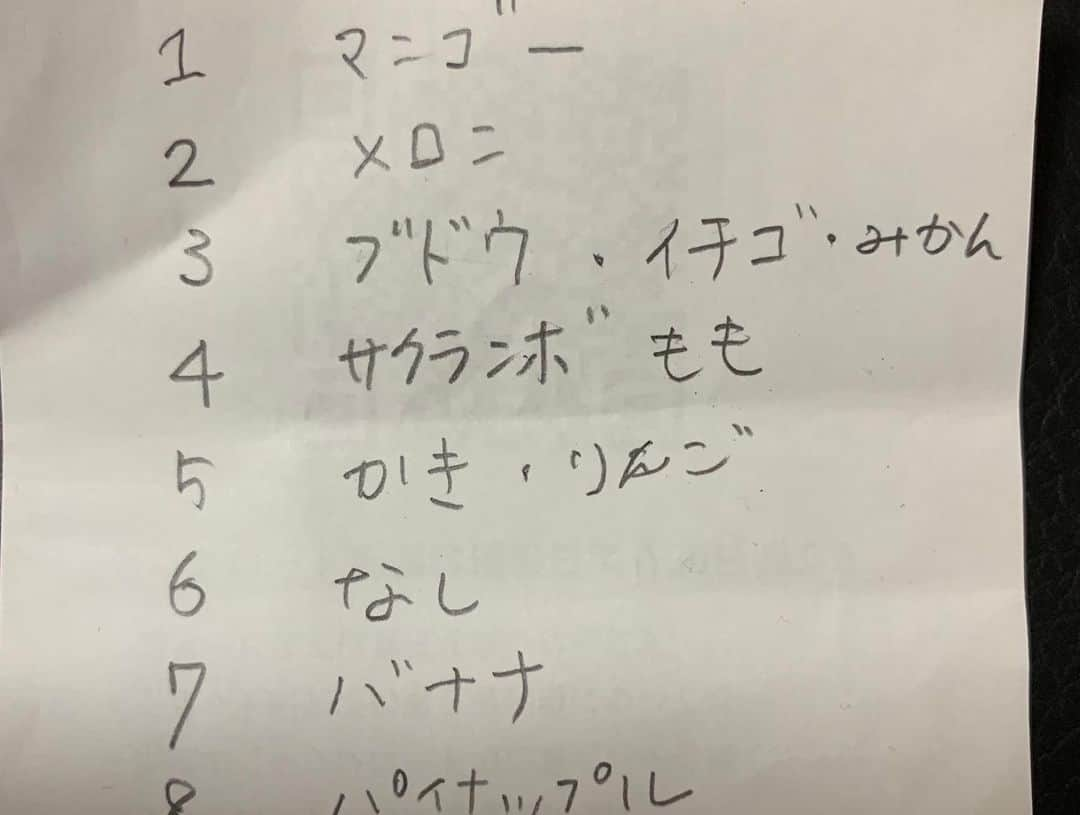 1 マンゴー
2 メロン
3 ブドウ・イチゴ・みかん
4 サクランボ もも
5 かき・りんご
6 なし
7 バナナ
8 パイナップル